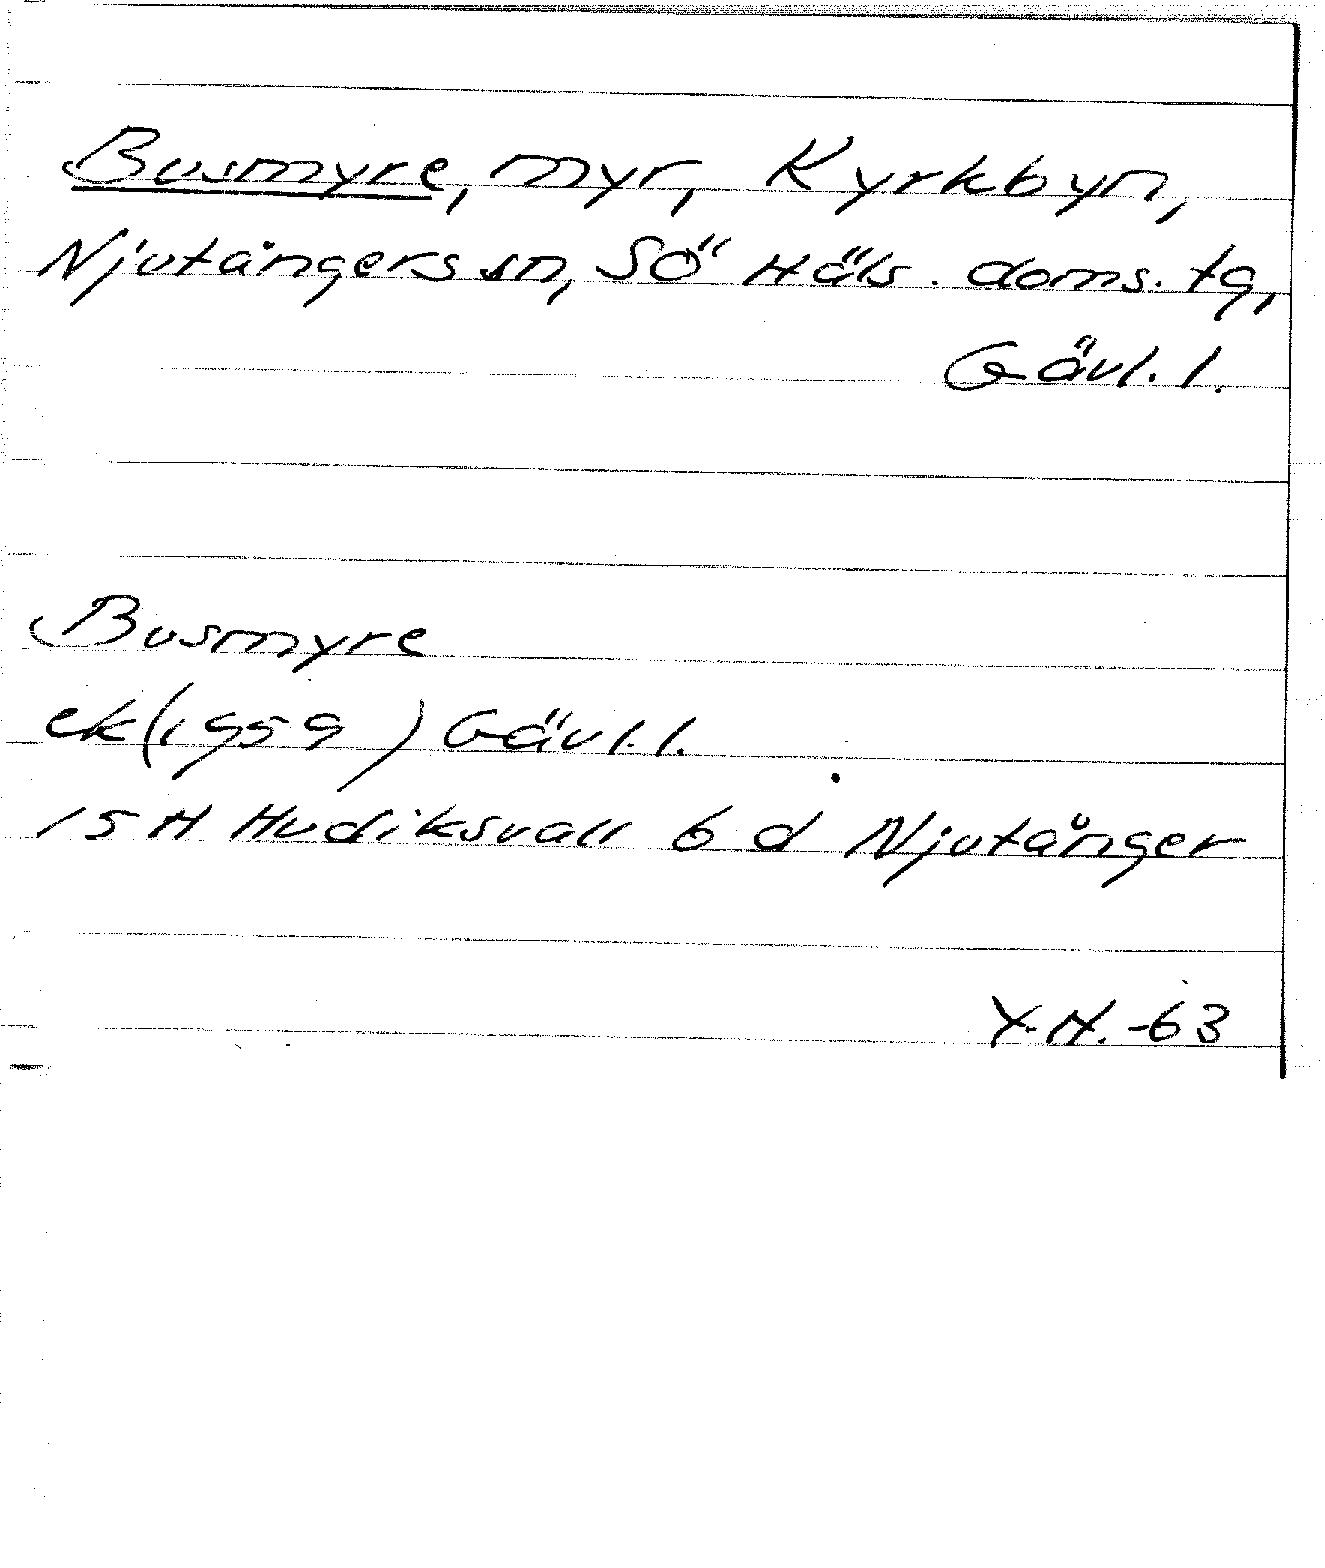 Busmyre, myr, Kyrkbyn,
Njutångers sn, SÖ Häls. doms. tg,
Gävl. l.
Busmyre
ek (1959) Gävl. l.
15 H Hudiksvall 6 d Njutånger
Y. H. -63